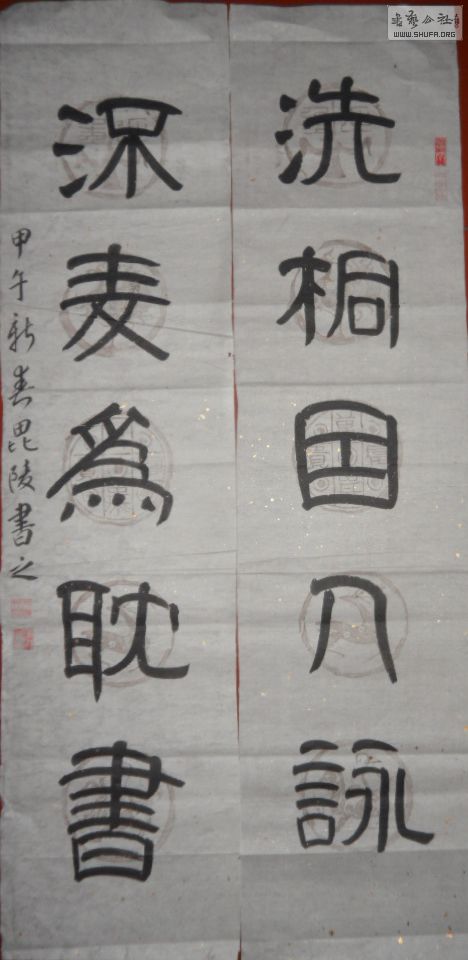 書藝公社
WWW.SHUFA.ORG
洗桐囙入詠
麦爲耽書
甲午新春毘陵書之